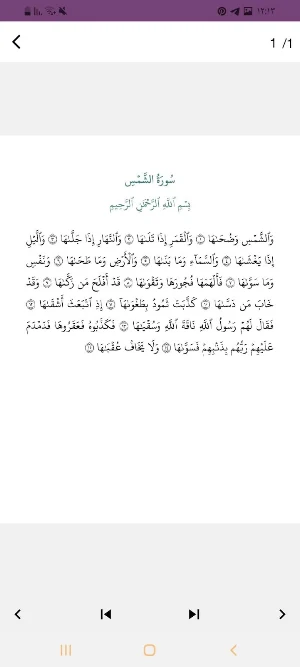 ١٢:١٣
1 /1
سُورَةُ الشَّمْسِ
بِسْمِ ٱللَّهِ ٱلرَّحْمَٰنِ ٱلرَّحِيمِ
وَٱلشَّمْسِ وَضُحَىٰهَا ۝١ وَٱلْقَمَرِ إِذَا تَلَىٰهَا ۝٢ وَٱلنَّهَارِ إِذَا جَلَّىٰهَا ۝٣ وَٱلَّيْلِ
إِذَا يَغْشَىٰهَا ۝٤ وَٱلسَّمَآءِ وَمَا بَنَىٰهَا ۝٥ وَٱلْأَرْضِ وَمَا طَحَىٰهَا ۝٦ وَنَفْسٍ
وَمَا سَوَّىٰهَا ۝٧ فَأَلْهَمَهَا فُجُورَهَا وَتَقْوَىٰهَا ۝٨ قَدْ أَفْلَحَ مَن زَكَّىٰهَا ۝٩ وَقَدْ
خَابَ مَن دَسَّىٰهَا ۝١٠ كَذَّبَتْ ثَمُودُ بِطَغْوَىٰهَآ ۝١١ إِذِ ٱنۢبَعَثَ أَشْقَىٰهَا ۝١٢
فَقَالَ لَهُمْ رَسُولُ ٱللَّهِ نَاقَةَ ٱللَّهِ وَسُقْيَٰهَا ۝١٣ فَكَذَّبُوهُ فَعَقَرُوهَا فَدَمْدَمَ
عَلَيْهِمْ رَبُّهُم بِذَنۢبِهِمْ فَسَوَّىٰهَا ۝١٤ وَلَا يَخَافُ عُقْبَٰهَا ۝١٥